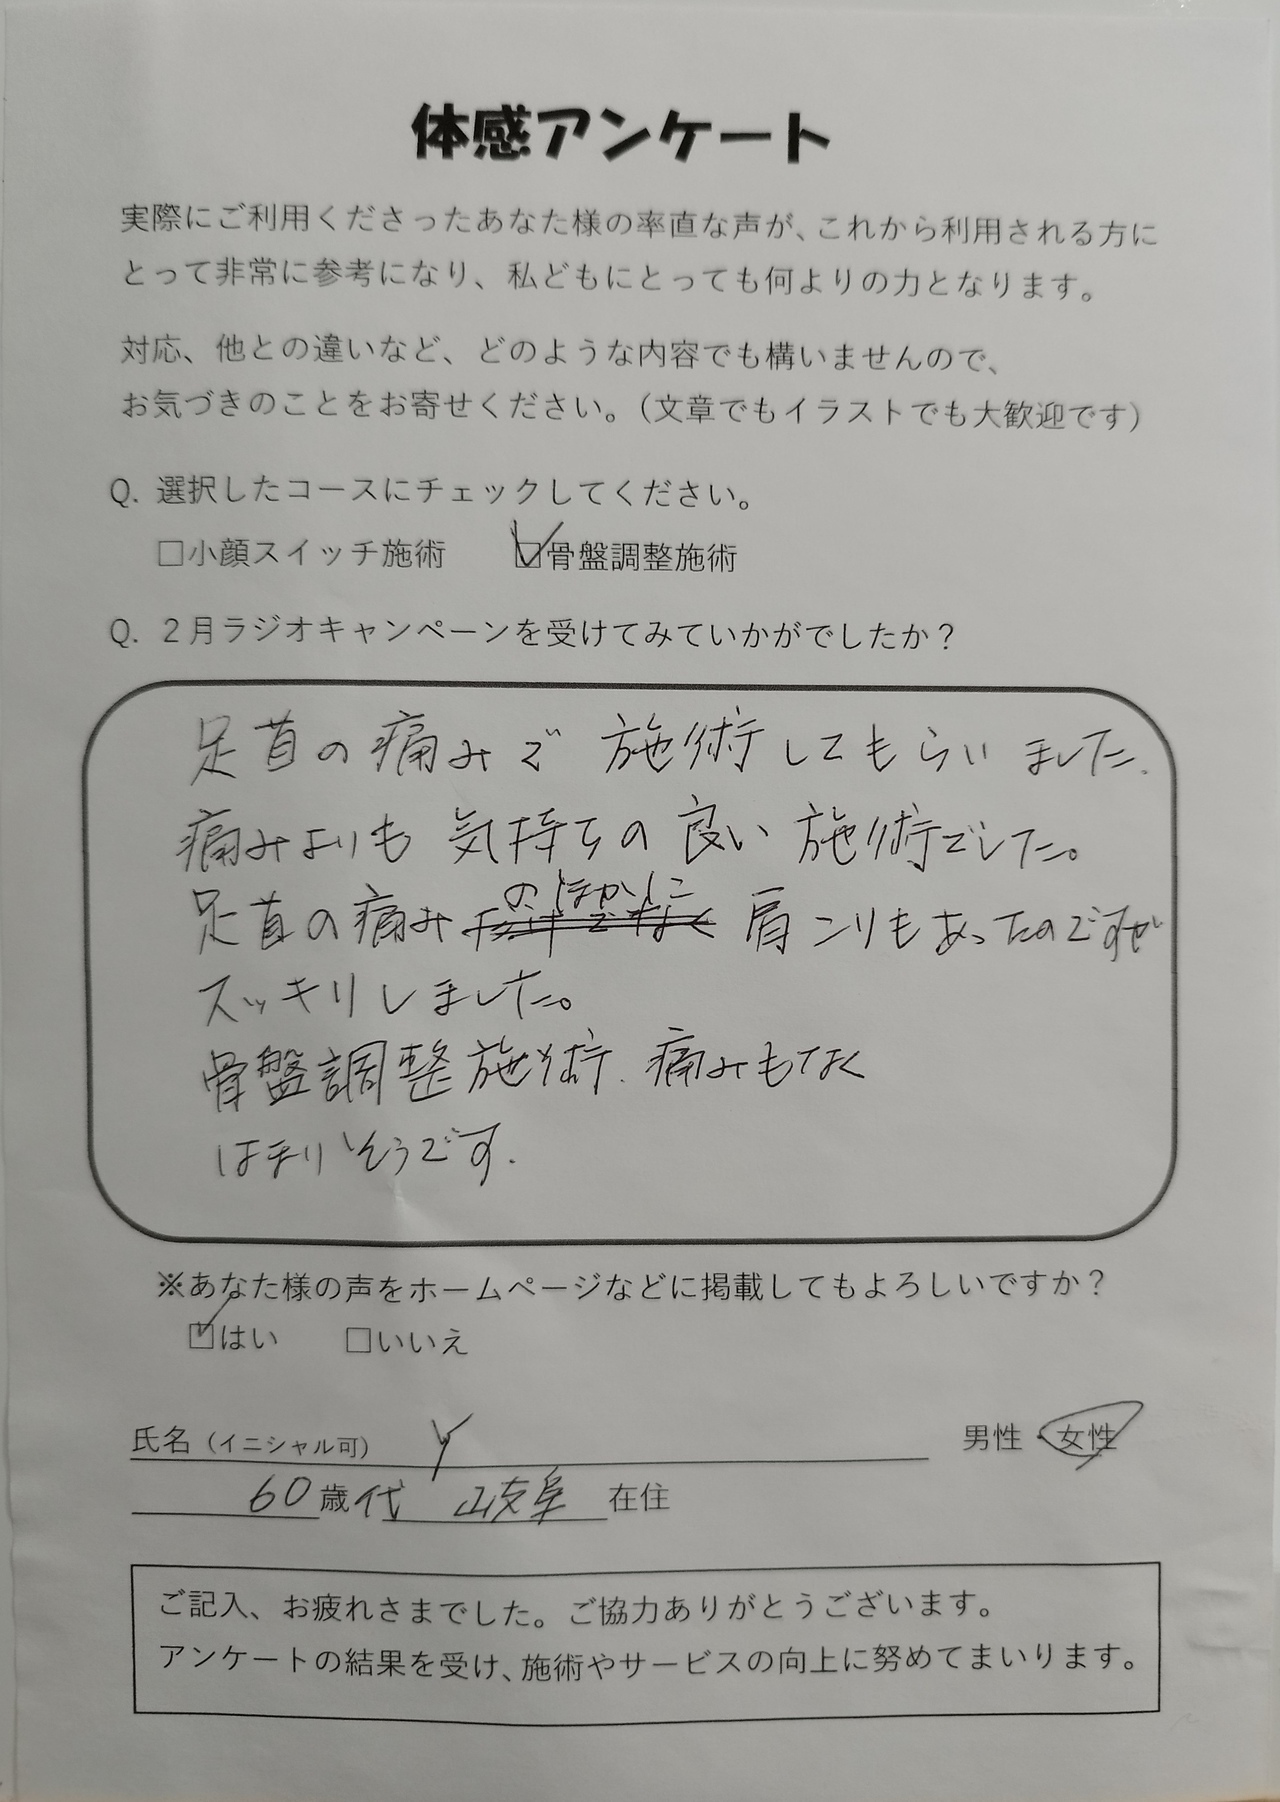 体感アンケート
実際にご利用くださったあなた様の率直な声が、これから利用される方に
とって非常に参考になり、私どもにとっても何よりの力となります。
対応、他との違いなど、どのような内容でも構いませんので、
お気づきのことをお寄せください。（文章でもイラストでも大歓迎です）
Q. 選択したコースにチェックしてください。
□小顔スイッチ施術 ☑骨盤調整施術
Q. ２月ラジオキャンペーンを受けてみていかがでしたか？
足首の痛みで 施術してもらいました.
痛みよりも 気持ちの良い 施術でした。
足首の痛みのほかに 肩コリもあったのですが
スッキリしました。
骨盤調整施術. 痛みもなく
はまりそうです.
※あなた様の声をホームページなどに掲載してもよろしいですか？
☑はい □いいえ
氏名（イニシャル可） Y 男性 女性
60歳代 岐阜 在住
ご記入、お疲れさまでした。ご協力ありがとうございます。
アンケートの結果を受け、施術やサービスの向上に努めてまいります。